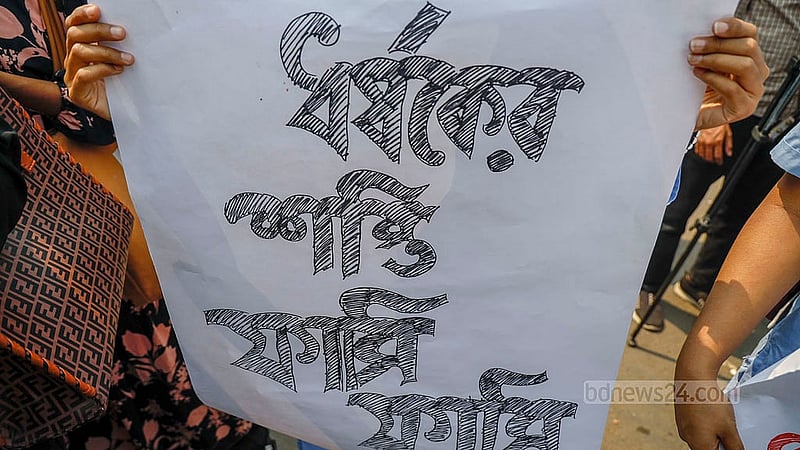 ধর্ষকের
শাস্তি
ফাসি
ফাসি
bdnews24.com